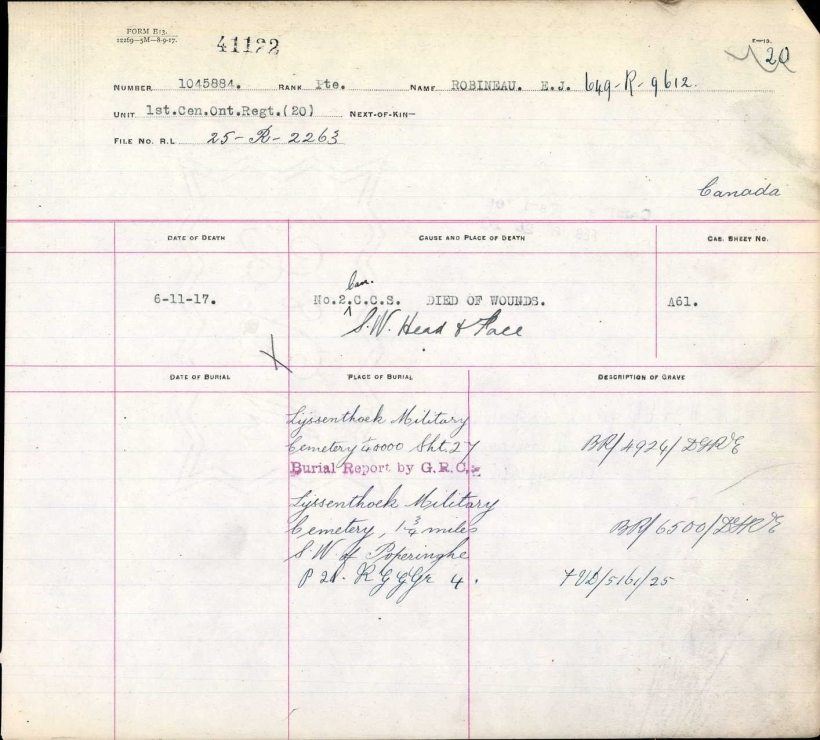 FORM E13.
12269—5M—8-9-17.
41122
E—13.
20
NUMBER 1045884. RANK Pte. NAME ROBINEAU. E.J. 649-R-9612.
UNIT 1st.Cen.Ont.Regt.(20) NEXT-OF-KIN—
FILE NO. R.L 25-R-2263
Canada
DATE OF DEATH CAUSE AND PLACE OF DEATH CAS. SHEET NO.
Can.
6-11-17. No.2.C.C.S. DIED OF WOUNDS. A61.
S.W. Head & Face
X
DATE OF BURIAL PLACE OF BURIAL DESCRIPTION OF GRAVE
Lijssenthoek Military
Cemetery 1/40000 Sht. 27 BR/4924/DGR&E
Burial Report by G.R.C.
Lijssenthoek Military
Cemetery, 1 3/4 miles BR/6500/DGR&E
S.W. of Poperinghe
4.